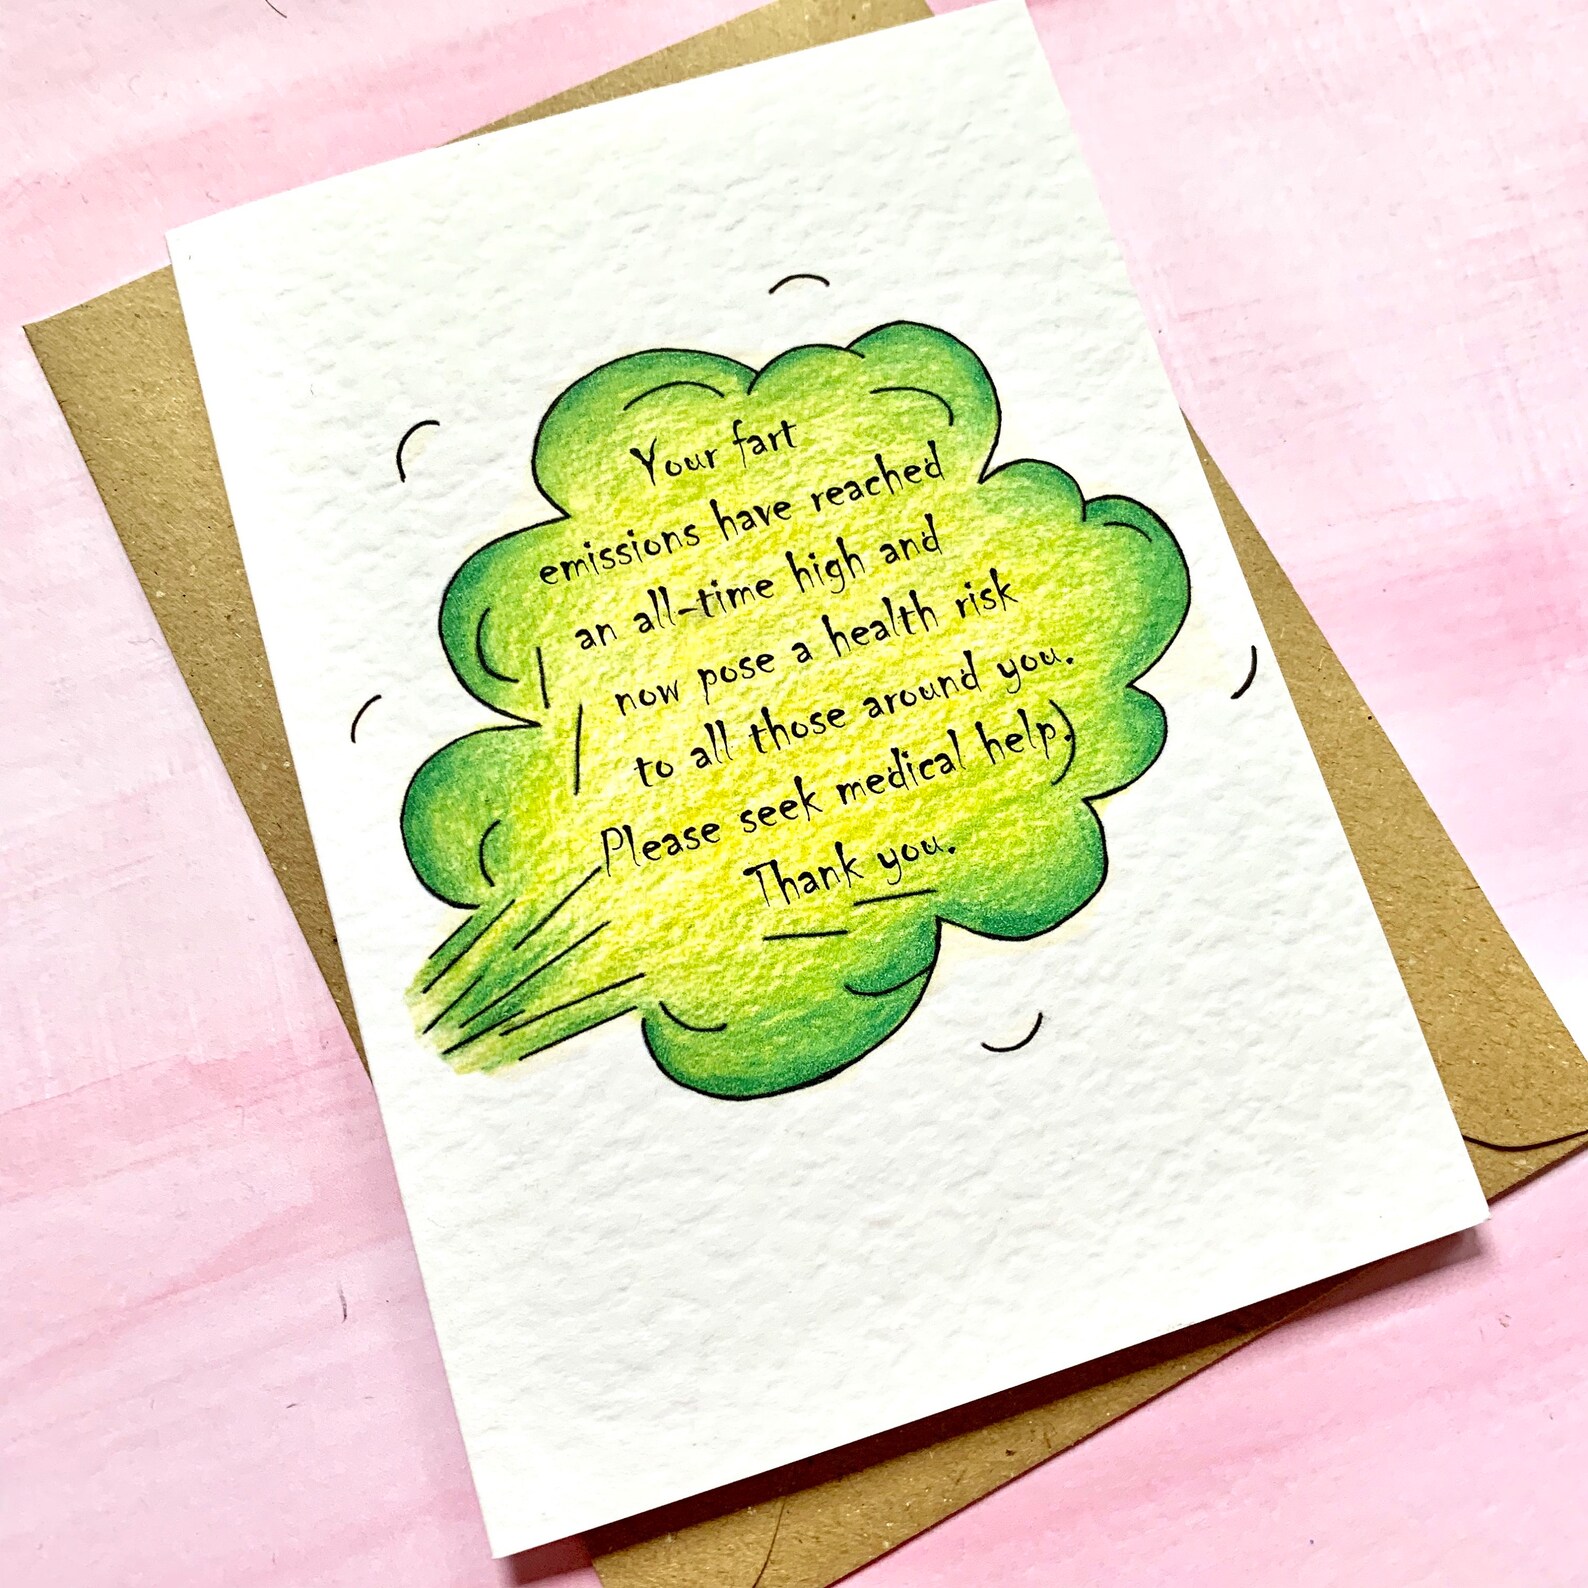 Your fart
emissions have reached
an all-time high and
now pose a health risk
to all those around you.
Please seek medical help.
Thank you.